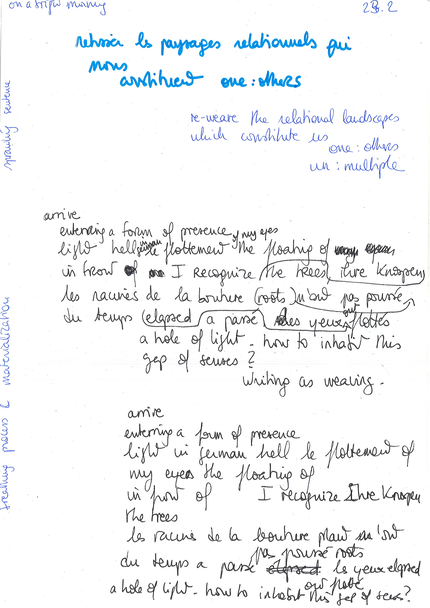 on a morning
23.2
retisser les paysages relationnels qui
nous
constituent one:others
re-weave the relational landscapes
which constitute us
one:others
un:multiple
speaking sentence
breathing process & materialization
arrive
entering a form of presence
light hell le flottement of my eyes the floating of
in front of I recognize the trees ihre Knospen
les racines de la bouture (roots) n'ont pas poussé
du temps (elapsed) a passé les yeux ont flottés
a hole of light - how to inhabit this
gap of senses?
writing as weaving -
arrive
entering a form of presence
light in german hell le flottement of
my eyes the floating of
in front of I recognize Ihre Knospen
the trees
les racines de la bouture n'ont
pas poussé roots
du temps a passé les yeux elapsed
ont flotté
a hole of light - how to inhabit this gap of senses?